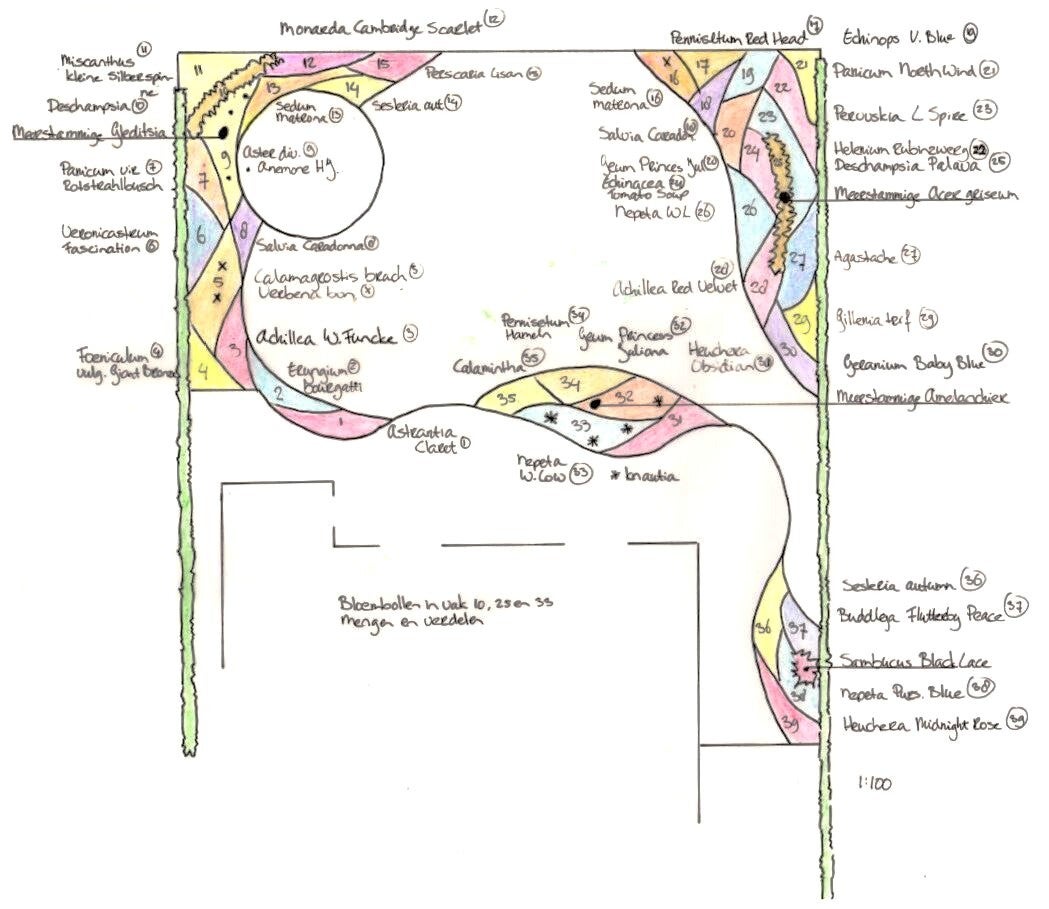 Monarda Cambridge Scarlet 12
Miscanthus 11
kleine Silberspin-
ne
Deschampsia 10
Meerstammige Gleditsia
Panicum vir. 7
Rotstrahlbusch
Veronicastrum
Fascination 6
Foeniculum 4
vulg. Giant Bronze
11
12
15
10
13
14
9
7
6
8
x
5
x
3
4
2
1
Persicaria Lisan 15
Sedum
matrona 13
Sesleria aut. 14
Aster div. 9
• Anemone H.J.
Salvia Caradonna 8
Calamagrostis brach 5
Verbena bon x
Achillea W. Funcke 3
Eryngium 2
Bourgatti
Astrantia
Claret 1
Pennisetum Red Head 17
Echinops V. Blue 19
Panicum North Wind 21
Perovskia L Spire 23
Helenium Rubinzwerg 22
Deschampsia Palava 25
Meerstammige Acer griseum
Agastache 27
Gillenia terf 29
Geranium Baby Blue 30
Meerstammige Amelanchier
Sedum
matrona 16
Salvia Caradon 18
Geum Princes Jul 20
Echinacea 24
Tomato Soup
Nepeta WL 26
Achillea Red Velvet 28
x
16
17
18
19
20
21
22
23
24
25
26
27
28
29
30
Pennisetum 34
Hameln
Geum Princess 32
Juliana
Heuchera
Obsidian 31
Calamintha 35
35
34
32
33
31
Nepeta
W. Low 33
* knautia
Bloembollen in vak 10, 25 en 33
mengen en verdelen
Sesleria autumn 36
Buddleja Flutterby Peace 37
Sambucus Black Lace
Nepeta Purs. Blue 38
Heuchera Midnight Rose 39
36
37
38
39
1:100